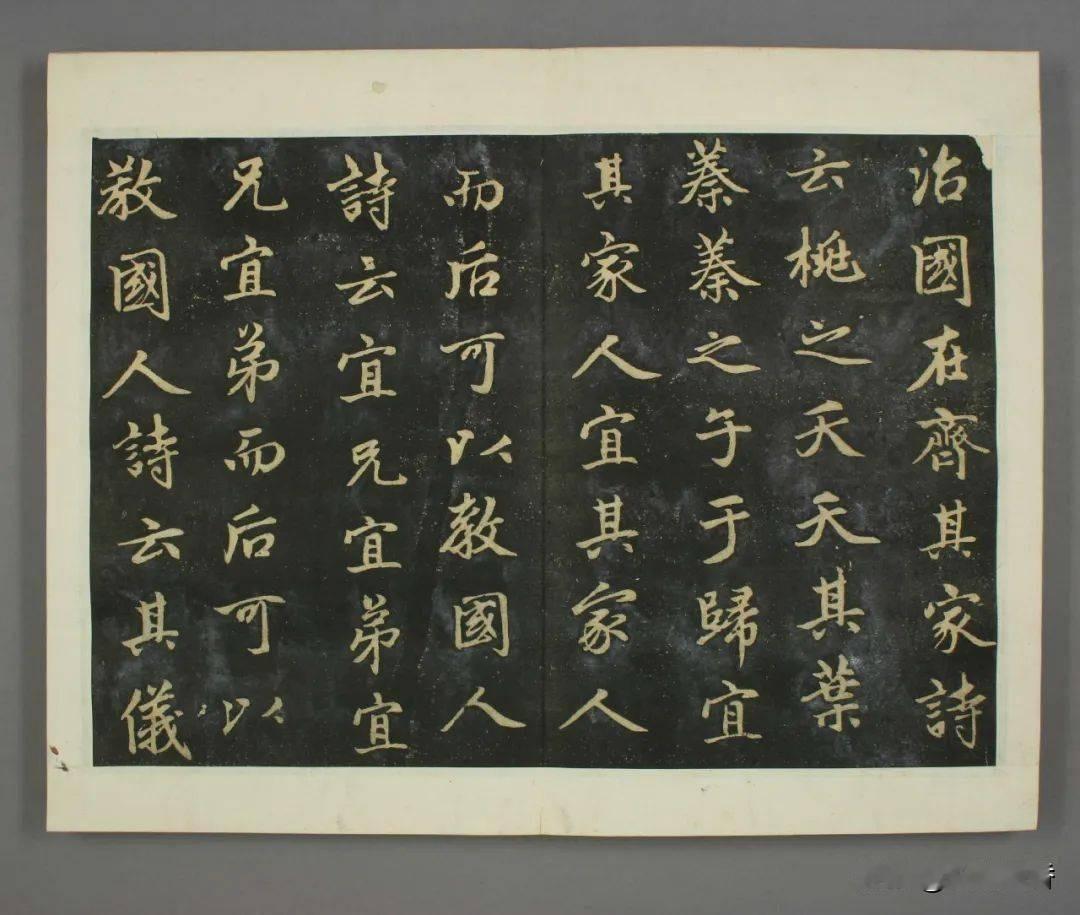 治國在齊其家詩
云桃之夭夭其葉
蓁蓁之子于歸宜
其家人宜其家人
而后可以教國人
詩云宜兄宜弟宜
兄宜弟而后可以
教國人詩云其儀